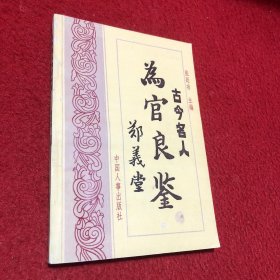 古今名人
為官良鉴
郑義堂
主编
中国人事出版社